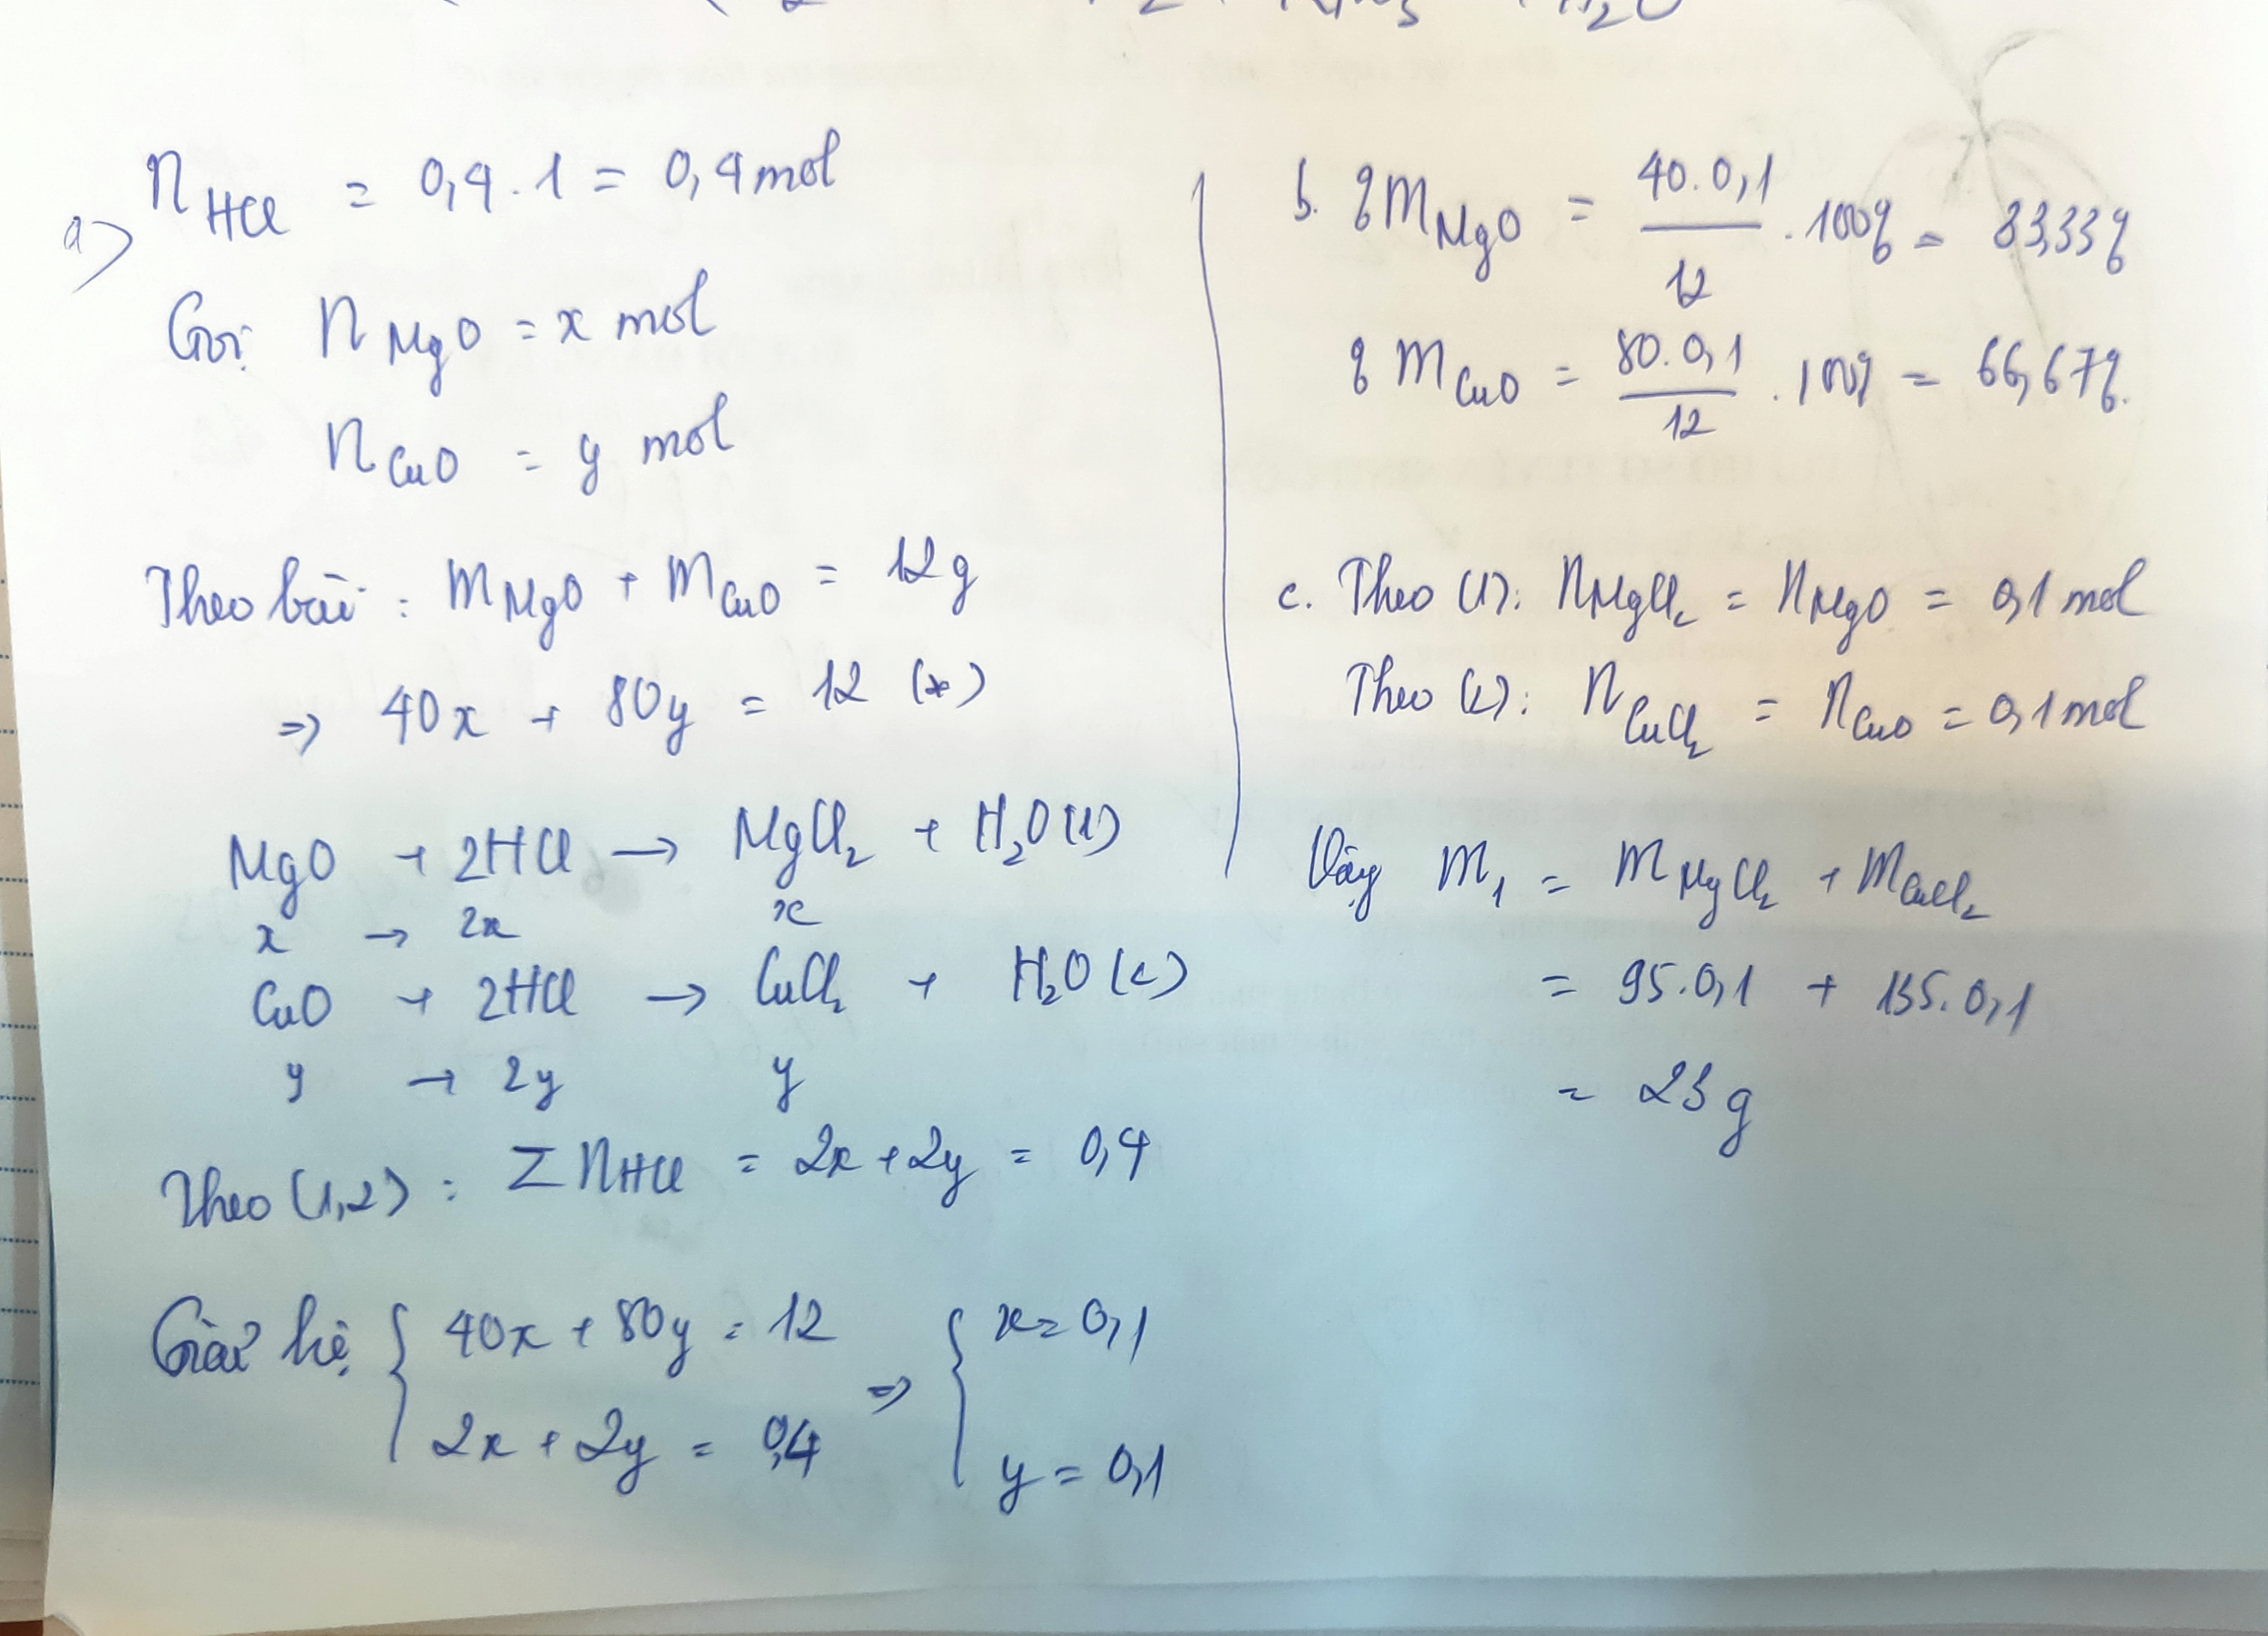 a) n HCl = 0,4 . 1 = 0,4 mol
Gọi n MgO = x mol
n CuO = y mol
Theo bài : m MgO + m CuO = 12 g
⇒ 40x + 80y = 12 (*)
MgO + 2HCl → MgCl₂ + H₂O (1)
x → 2x x
CuO + 2HCl → CuCl₂ + H₂O (2)
y → 2y y
Theo (1,2) : Σ n HCl = 2x + 2y = 0,4
Giải hệ { 40x + 80y = 12 ⇒ { x = 0,1
2x + 2y = 0,4 y = 0,1
b. % m MgO = 40.0,1 / 12 . 100% = 33,33%
% m CuO = 80.0,1 / 12 . 100% = 66,67%.
c. Theo (1): n MgCl₂ = n MgO = 0,1 mol
Theo (2): n CuCl₂ = n CuO = 0,1 mol
Vậy m₁ = m MgCl₂ + m CuCl₂
= 95.0,1 + 135.0,1
= 23 g